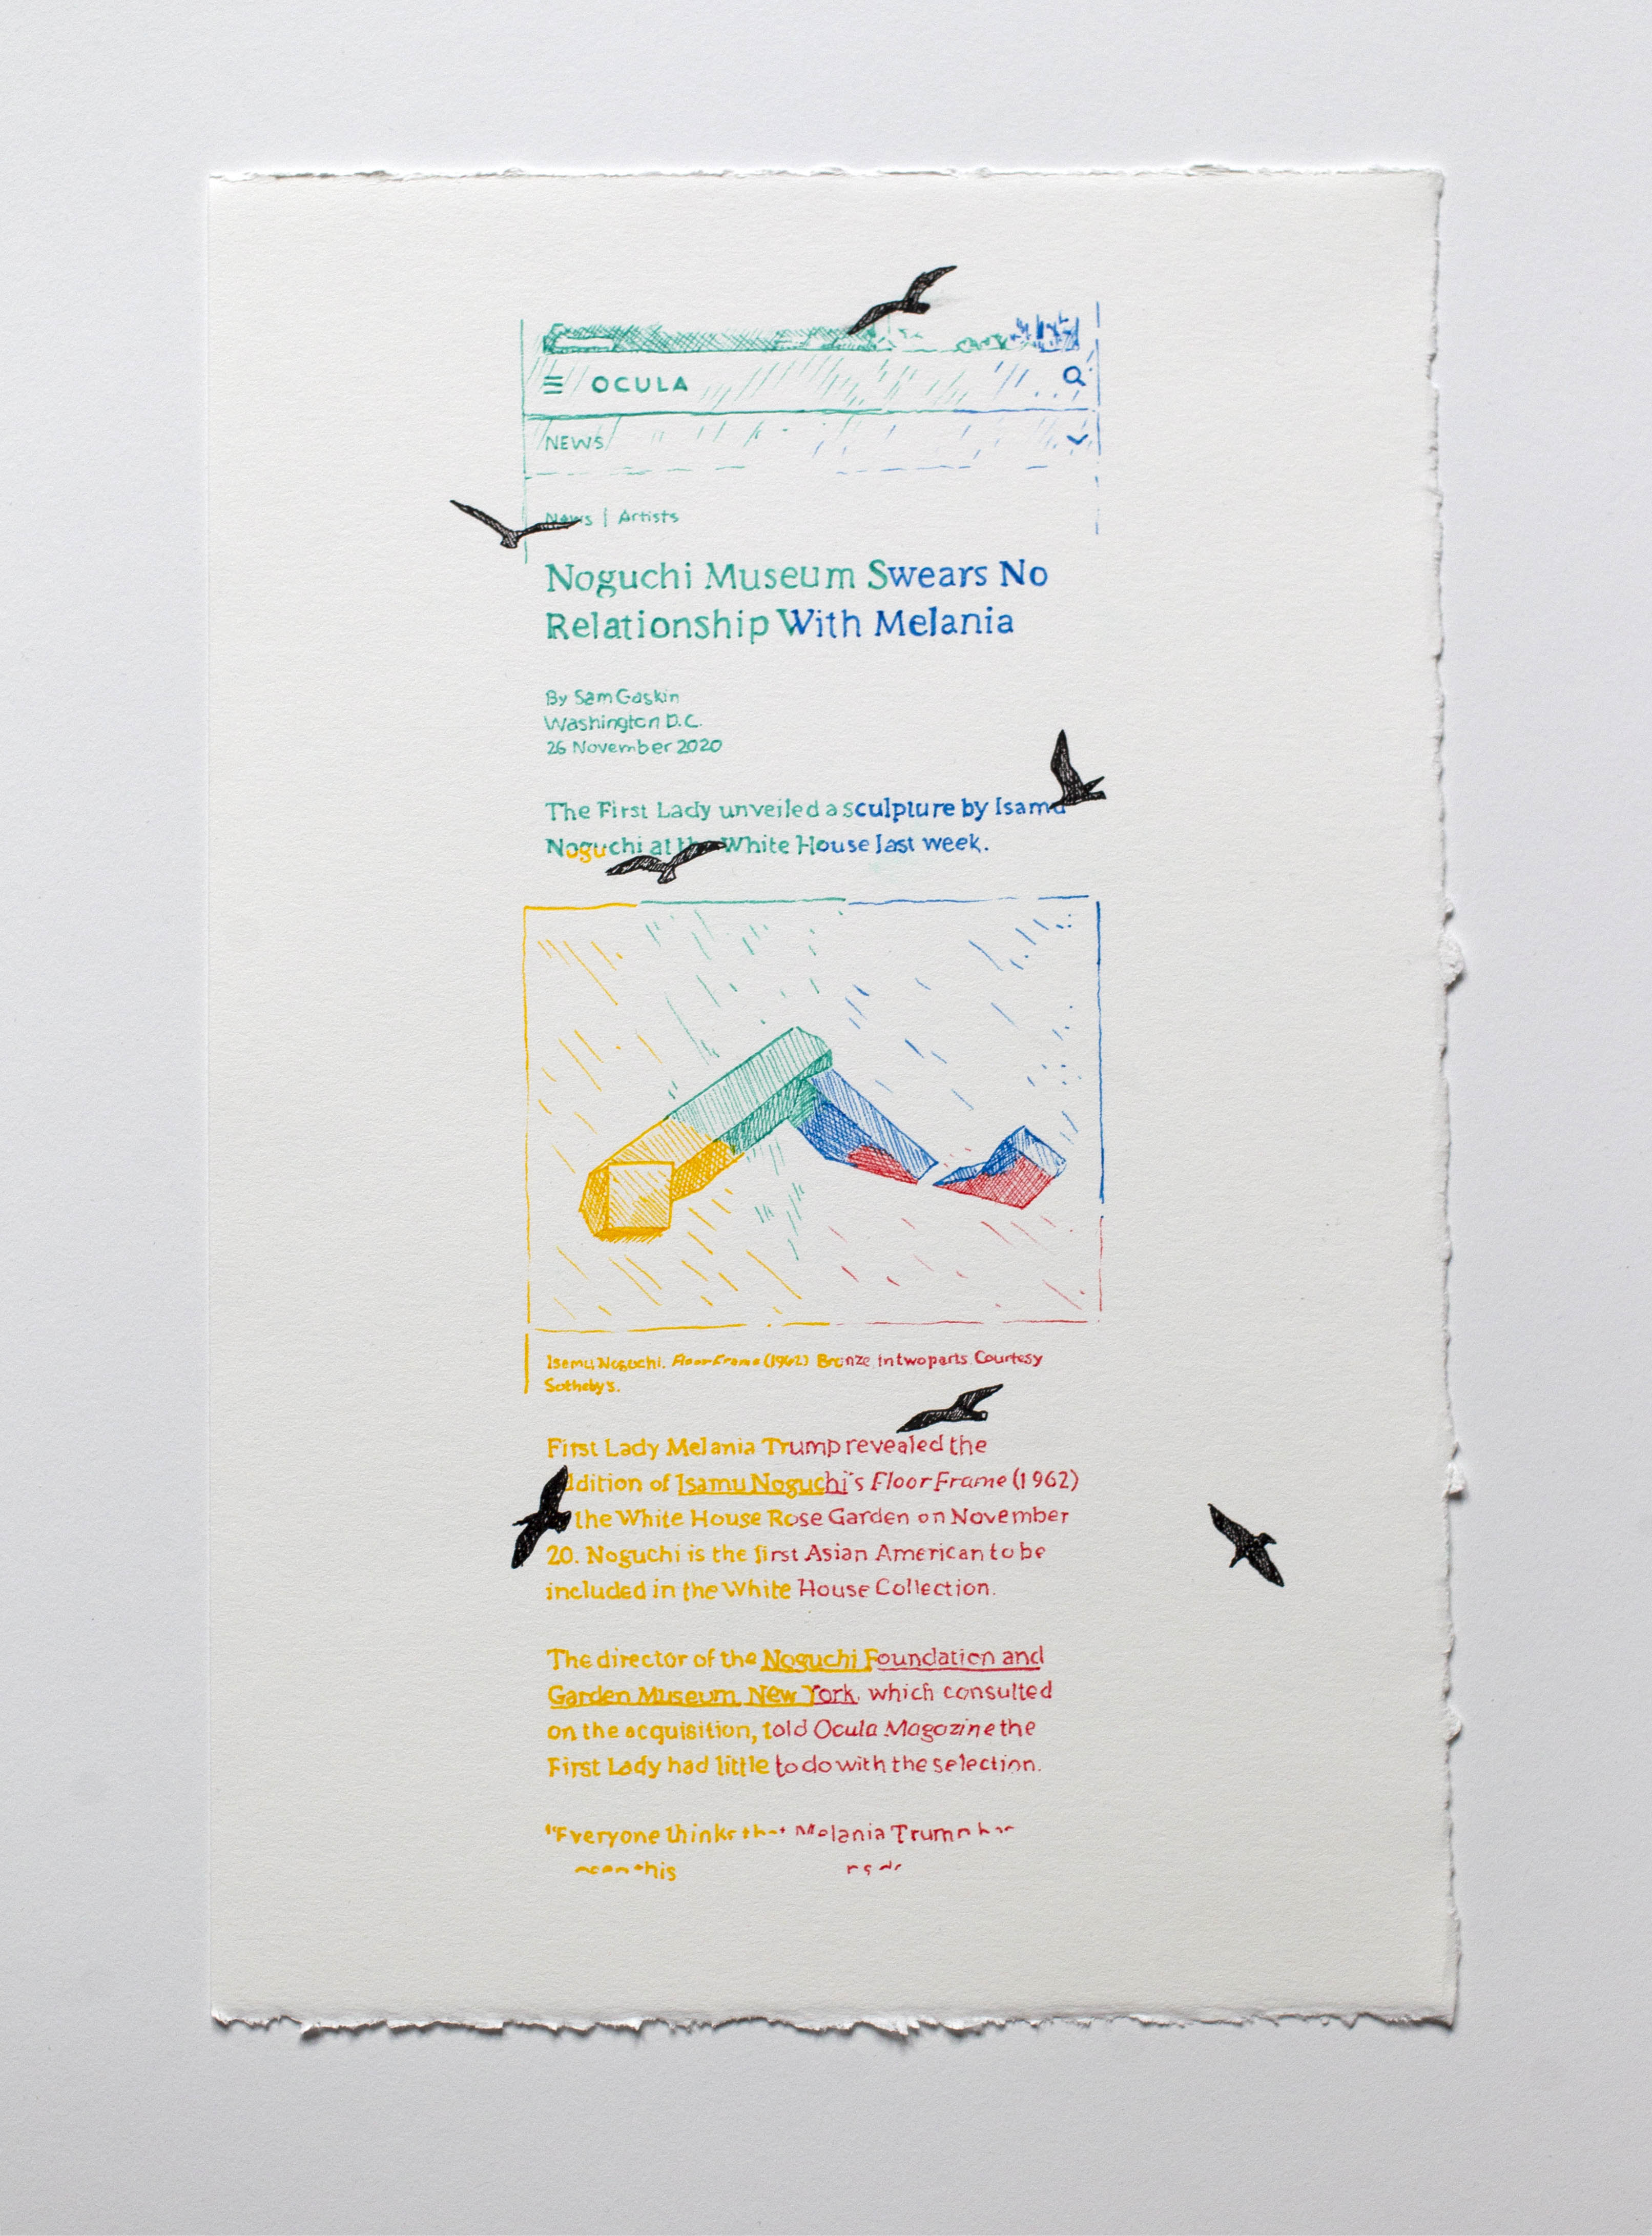 OCULA
NEWS
News | Artists
Noguchi Museum Swears No
Relationship With Melania
By Sam Gaskin
Washington D.C.
26 November 2020
The First Lady unveiled a sculpture by Isamu
Noguchi at the White House last week.
Isamu Noguchi, Floor Frame (1962) Bronze in two parts. Courtesy
Sotheby's.
First Lady Melania Trump revealed the
addition of Isamu Noguchi's Floor Frame (1962)
the White House Rose Garden on November
20. Noguchi is the first Asian American to be
included in the White House Collection.
The director of the Noguchi Foundation and
Garden Museum, New York, which consulted
on the acquisition, told Ocula Magazine the
First Lady had little to do with the selection.
"Everyone thinks that Melania Trump has
this